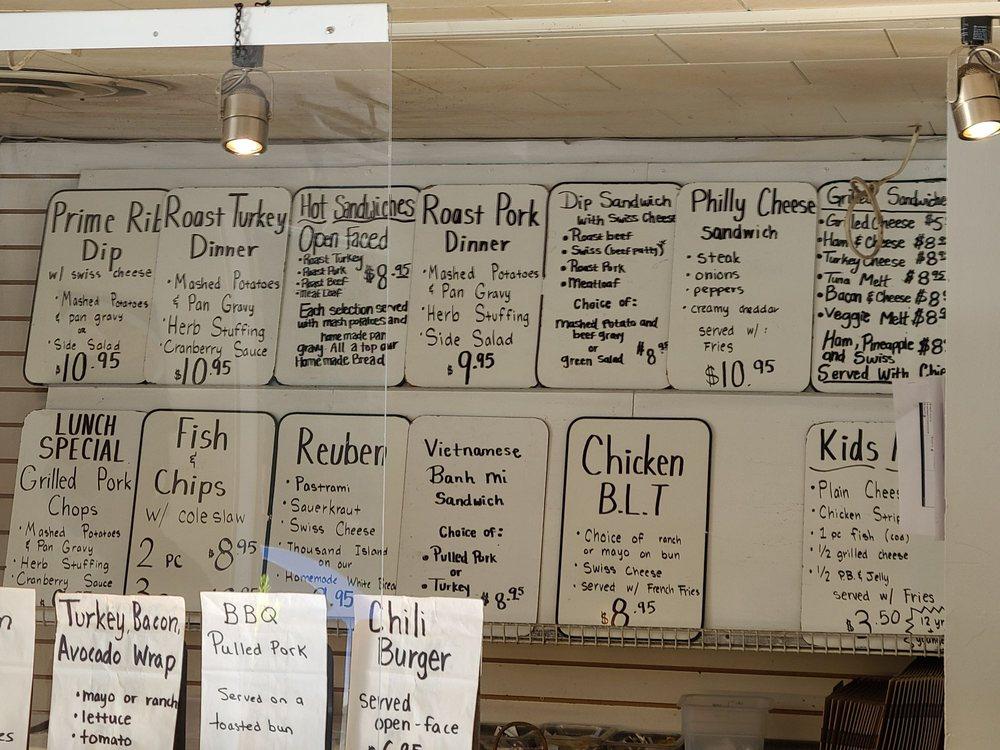 Prime Rib
Dip
w/ swiss cheese
• Mashed Potatoes
& pan gravy
or
• Side Salad
$10.95
Roast Turkey
Dinner
• Mashed Potatoes
& Pan Gravy
• Herb Stuffing
• Cranberry Sauce
$10.95
Hot Sandwiches
Open Faced
• Roast Turkey
• Roast Pork
• Roast Beef
• Meat Loaf
$8.95
Each selection served
with mash potatoes and
homemade pan
gravy. All a top our
Homemade Bread
Roast Pork
Dinner
• Mashed Potatoes
& Pan Gravy
• Herb Stuffing
• Side Salad
$9.95
Dip Sandwich
with Swiss Cheese
• Roast beef
• Swiss (beef patty)
• Roast Pork
• Meatloaf
Choice of:
Mashed Potato and
beef gravy
or
green Salad
$8.95
Philly Cheese
Sandwich
• steak
• onions
• peppers
• creamy cheddar
served w/:
Fries
$10.95
Grilled Sandwiches
• Grilled Cheese $5
• Ham & Cheese $8.95
• Turkey Cheese $8.95
• Tuna Melt $8.95
• Bacon & Cheese $8
• Veggie Melt $8
Ham, Pineapple $8
and Swiss
Served With Chip
LUNCH
SPECIAL
Grilled Pork
Chops
• Mashed Potatoes
& Pan Gravy
• Herb Stuffing
• Cranberry Sauce
Fish
&
Chips
w/ coleslaw
2 pc $8.95
Reuben
• Pastrami
• Sauerkraut
• Swiss Cheese
• Thousand Island
on our
Homemade White Bread
9.95
Vietnamese
Banh mi
Sandwich
Choice of:
• Pulled Pork
or
• Turkey $8.95
Chicken
B.L.T
• Choice of ranch
or mayo on bun
• Swiss Cheese
• served w/ French Fries
$8.95
Kids
• Plain Chees
• Chicken Strip
• 1 pc fish (cod)
• 1/2 grilled cheese
• 1/2 P.B. & Jelly
served w/ Fries
$3.50
12 yr
Turkey, Bacon,
Avocado Wrap
• mayo or ranch
• lettuce
• tomato
BBQ
Pulled Pork
Served on a
toasted bun
Chili
Burger
served
open-face